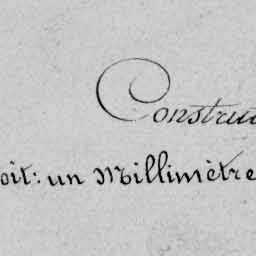 Constru
oit: un Millimètre